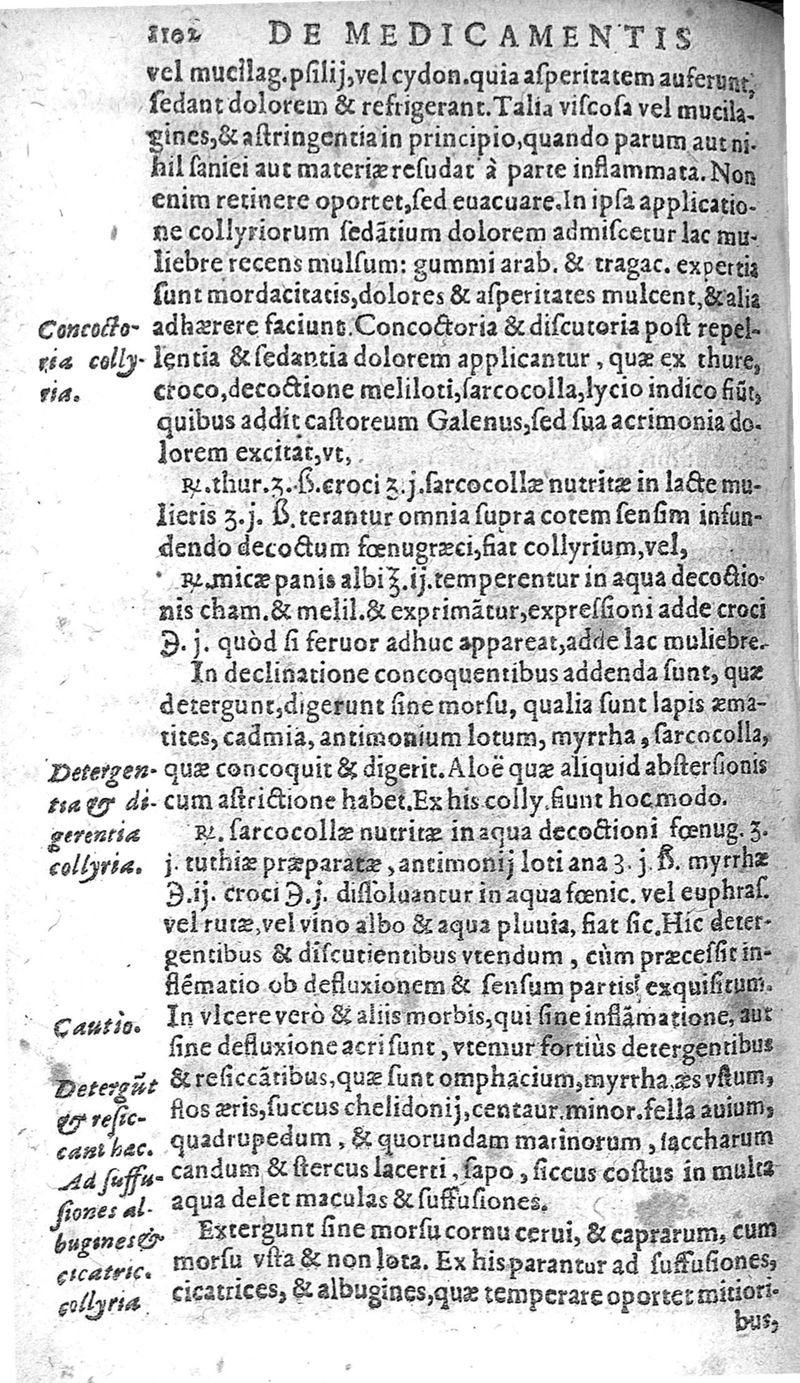 1102 DE MEDICAMENTIS
vel mucilag. psilij, vel cydon. quia asperitatem auferunt,
sedant dolorem & refrigerant. Talia viscosa vel mucila-
gines, & astringentia in principio, quando parum aut ni-
hil saniei aut materiæ resudat à parte inflammata. Non
enim retinere oportet, sed euacuare. In ipsa applicatio-
ne collyriorum sedãtium dolorem admiscetur lac mu-
liebre recens mulsum: gummi arab. & tragac. expertia
sunt mordacitatis, dolores & asperitates mulcent, & alia
Concocto-
ria colly-
ria.
adhærere faciunt. Concoctoria & discutoria post repel-
lentia & sedantia dolorem applicantur, quæ ex thure,
croco, decoctione meliloti, sarcocolla, lycio indico fiũt,
quibus addit castoreum Galenus, sed sua acrimonia do-
lorem excitat, vt,
℞. thur. ʒ. ß. croci ʒ. j. sarcocollæ nutritæ in lacte mu-
lieris ʒ. j. ß. terantur omnia supra cotem sensim infun-
dendo decoctum fœnugræci, fiat collyrium, vel,
℞. micæ panis albi ℥. ij. temperentur in aqua decoctio-
nis cham. & melil. & exprimãtur, expressioni adde croci
℈. j. quòd si feruor adhuc appareat, adde lac muliebre.
In declinatione concoquentibus addenda sunt, quæ
detergunt, digerunt sine morsu, qualia sunt lapis æma-
tites, cadmia, antimonium lotum, myrrha, sarcocolla,
Detergen-
tia & di-
gerentia
collyria.
quæ concoquit & digerit. Aloë quæ aliquid abstersionis
cum astrictione habet. Ex his colly. fiunt hoc modo.
℞. sarcocollæ nutritæ in aqua decoctioni fœnug. ʒ.
j. tuthiæ præparatæ, antimonij loti ana ʒ. j. ß. myrrhæ
℈. ij. croci ℈. j. dissoluantur in aqua fœnic. vel euphras.
vel rutæ, vel vino albo & aqua pluuia, fiat sic. Hic deter-
gentibus & discutientibus vtendum, cùm præcessit in-
flẽmatio ob defluxionem & sensum partis exquisitum.
Cautio.
In vlcere verò & aliis morbis, qui sine inflãmatione, aut
sine defluxione acri sunt, vtemur fortiùs detergentibus
Detergũt
& resic-
cant hac.
& resiccãtibus, quæ sunt omphacium, myrrha, æs vstum,
flos æris, succus chelidonij, centaur. minor. fella auium,
quadrupedum, & quorundam marinorum, saccharum
Ad suffu-
siones al-
bugines &
cicatric.
collyria
candum & stercus lacerti, sapo, siccus costus in multa
aqua delet maculas & suffusiones.
Extergunt sine morsu cornu cerui, & caprarum, cum
morsu vsta & non lota. Ex his parantur ad suffusiones,
cicatrices, & albugines, quæ temperare oportet mitiori-
bus,